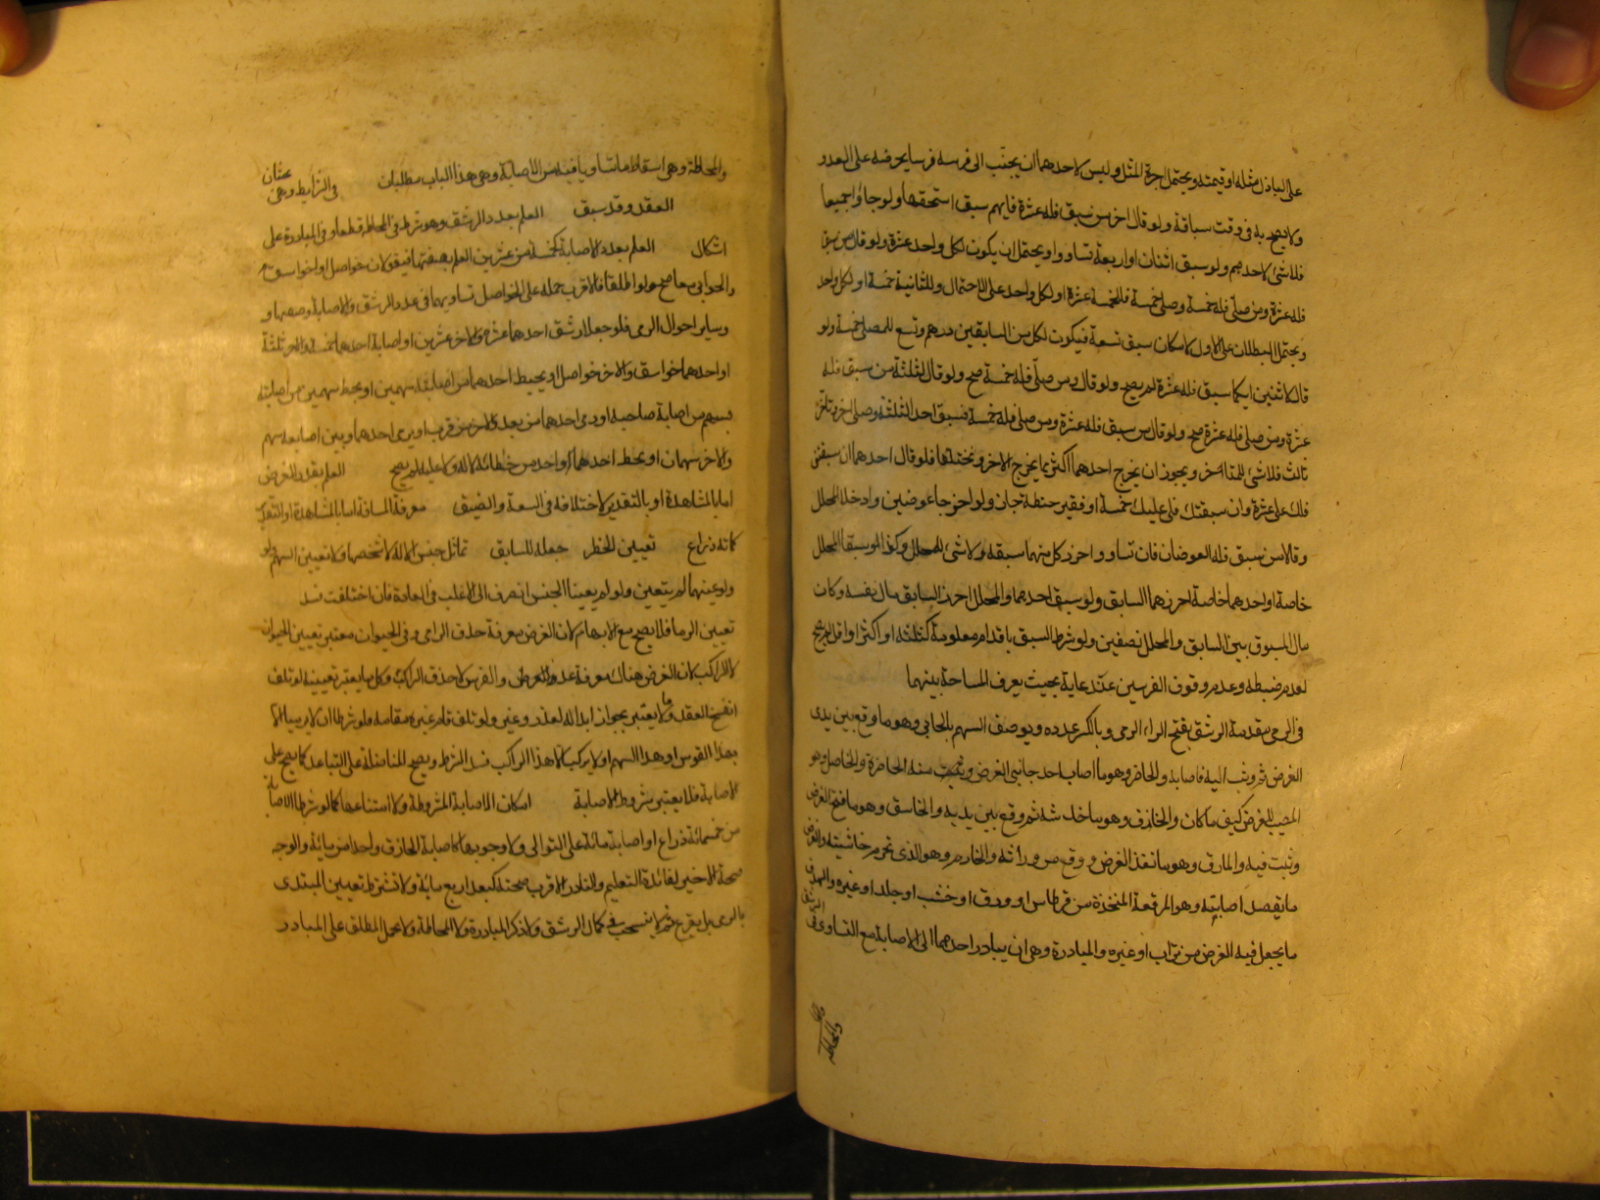 على الباذل مثله او قيمته ويحتمل اجرة المثل وليس لاحدهما ان يجنب الى فرسه فرسا يحرضه على العدو
ولا يصيح به فى وقت سباقه ولو قال اخر من سبق فله عشرة فايهم سبق استحقها ولو جاؤا جميعا
فلا شئ لاحدهم ولو سبق اثنان او اربعة تساووا ويحتمل ان يكون لكل واحد عشرة ولو قال من سبق
فله عشرة ومن صلى فله خمسة وصلى خمسة فللخمسة عشرة او لكل واحد على الاحتمال وللثانية خمسة او لكل واحد
ويحتمل البطلان على الاول لامكان سبق تسعة فيكون لكل من السابقين درهم وتسع للمصلى خمسة ولو
قال لاثنين ايكما سبق فله عشرة لم يصح ولو قال ومن صلى فله خمسة صح ولو قال لثلثة من سبق فله
عشرة ومن صلى فله عشرة صح ولو قال من سبق فله عشرة ومن صلى فله خمسة فسبق احد الثلثة وصلى اخر وتاخر
ثالث فلا شئ للمتاخر ويجوز ان يخرج احدهما اكثر مما يخرج الاخر ونختلفا فلو قال احدهما ان سبقتنى
فلك على عشرة وان سبقتك فلى عليك خمسة او قفيز حنطة جاز ولو اخرجا عوضين وادخلا المحلل
وقالا من سبق فله العوضان فان تساووا احرز كل منهما سبقه ولا شئ للمحلل وكذا لو سبقا المحلل
خاصة او احدهما خاصة احرزهما السابق ولو سبق احدهما والمحلل احرز السابق مال نفسه وكان
مال المسبوق بين السابق والمحلل نصفين ولو شرطا السبق باقدام معلومة كثلثه او اكثر او اقل لم يصح
لعدم ضبطه وعدم وقوف الفرسين عند غاية بحيث يعرف المساحة بينهما
فى الرمى مقدمة الرشق بفتح الراء الرمى وبالكسر عدده ويوصف السهم بالحابى وهو ما وقع بين يدى
الغرض ثم وثب اليه فاصابه والخاضر وهو ما اصاب احد جانبى الغرض ومنه الحاضرة والخاصل وهو
المصيب للغرض كيف ما كان والخازق وهو ما خدشه ثم وقع بين يديه والخاسق وهو ما فتح الغرض
وثبت فيه والمارق وهو ما نفذ الغرض ووقع من ورائه والخارم وهو الذى تخرم حاشيته والغرض
ما يقصد اصابته وهو الرقعة المتخذة من قرطاس او ورق او خشب او جلد او غيره والهدف
ما يجعل فيه الغرض من تراب او غيره والمبادرة وهى ان يبادر احدهما الى الاصابة مع التساوى فى
الرشق
والمحاطة
والمحاطة وهى اسقاط ما تساويا فيه من الاصابة وهى هذا الباب مطلبان فى الشرايط وهى
بحثان
العقد وقد سبق العلم بعدد الرشق وهو شرط فى المحاطة قطعا وفى المبادرة على
اشكال العلم بعدد الاصابة كخمسة من عشرين العلم بصفتها فيقولان خواصل او خواسق
والحوابى معا صح ولو اطلقا فالاقرب حمله على الخواصل تساويهما فى عدد الرشق والاصابة وصفتها و
وساير احوال الرمى فلو جعلا رشق احدهما عشرة والاخر عشرين او اصابة احدهما خمسة والاخر ثلثة
او احدهما خواسق والاخر خواصل او يحط احدهما من اصابته سهمين او يحط سهمين من اصابته
بسهم من اصابة صاحبه او رمى احدهما من بعد والاخر من قرب او يرمى احدهما وبين اصابعه سهم
والاخر سهمان او يحط احدهما واحد من خطائه لا له ولا عليه لم يصح العلم بقدر الغرض
اما بالمشاهدة او بالتقدير لاختلافه فى السعة والضيق معرفة المسافة اما بالمشاهدة او التقدير
كماته ذراع تعيين الخطر جعله للسابق تماثل جنس الالة لا شخصها ولا تعيين السهم ولو
ولو عينهما لم يتعين ولو لم يعينا الجنس انصرف الى الاغلب فى العادة فان اختلفت فسد
تعيين الرماة فلا يصح مع الابهام لان الغرض معرفة حذق الرامى وفى الحيوان معتبر تعيين الحيوان
لا الراكب لان الغرض هناك معرفة عدو الفرس لا حذق الراكب وكل ما يعتبر تعيينه لو تلف
انفسخ العقد وما لا يعتبر يجوز ابداله لعذر وغيره ولو تلف قام غيره مقامه فلو شرطا ان لا يرميا الا
بهذا القوس او هذا السهم او لا يركب الا هذا الراكب فسد الشرط ويصح المناضلة على التباعد كما يصح على
الاصابة فلا يعتبر شروط الاصابة امكان الاصابة المشروطة ولا امتناعها كما لو شرطا الاصابة
من خمسمائة ذراع او اصابة مائة على التوالى ولا وجوبها كاصابة الحاذق واحدا من مائة والوجه
صحة الاخير لفائدة التعليم والنادر الاقرب صحته كبعد اربع مائة ولا تشترط تعيين المبتدى
بالرمى بل يقرع ثم لا ينسحب فى كمال الرشق ولا ذكر المبادرة ولا المحاطة ولا يحمل المطلق على المبادر